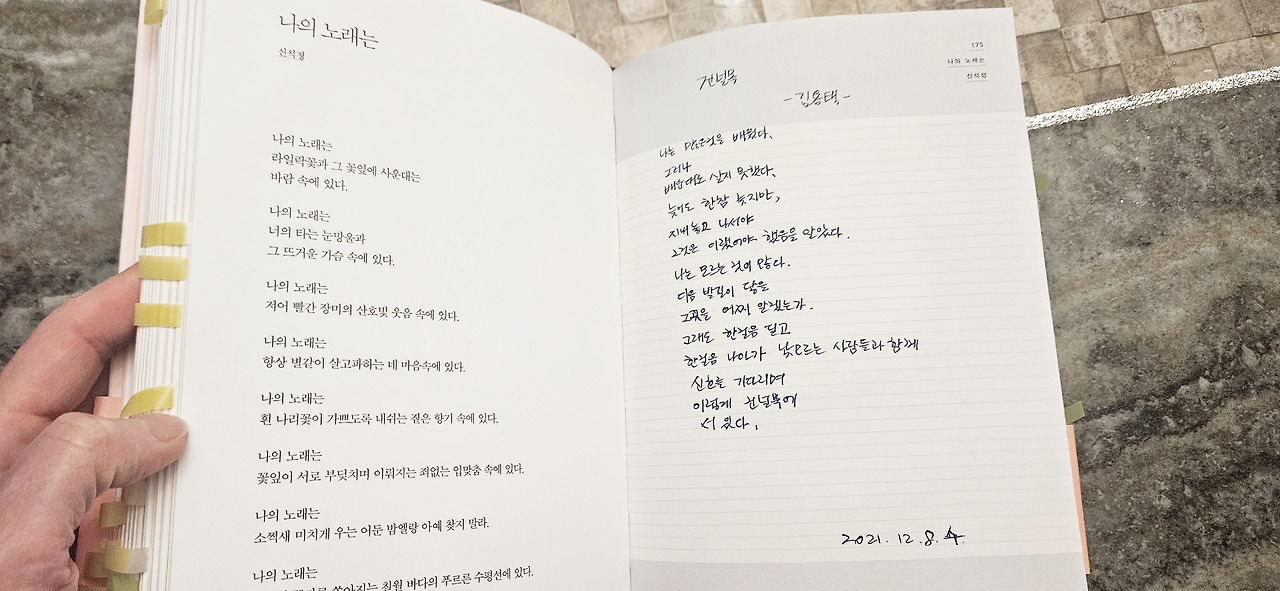 나의 노래는
신석정
나의 노래는
라일락꽃과 그 꽃잎에 사운대는
바람 속에 있다.
나의 노래는
너의 타는 눈망울과
그 뜨거운 가슴 속에 있다.
나의 노래는
저어 빨간 장미의 산호빛 웃음 속에 있다.
나의 노래는
항상 별같이 살고파하는 네 마음속에 있다.
나의 노래는
흰 나리꽃이 가쁘도록 내쉬는 짙은 향기 속에 있다.
나의 노래는
꽃잎이 서로 부딪치며 이뤄지는 죄없는 입맞춤 속에 있다.
나의 노래는
소쩍새 미치게 우는 어둔 밤엘랑 아예 찾지 말라.
나의 노래는
쏟아지는 칠월 바다의 푸르른 수평선에 있다.
175
나의 노래는
신석정
건널목
-김용택-
나는 많은것을 배웠다.
그러나
배운대로 살지 못했다.
늦어도 한참 늦지만,
지내놓고 나서야
그것은 이랬어야 했음을 알았다.
나는 모르는 것이 많다.
다음 발길이 닿을
그곳을 어찌 알겠는가.
그래도 한걸음 딛고
한걸음 나아가 낯모르는 사람들과 함께
신호를 기다리며
이렇게 건널목에
서 있다.
2021. 12. 8. 수.